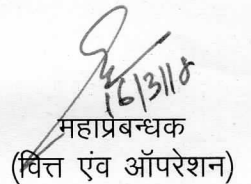 16/3/18
महाप्रबन्धक
(वित्त एंव ऑपरेशन)